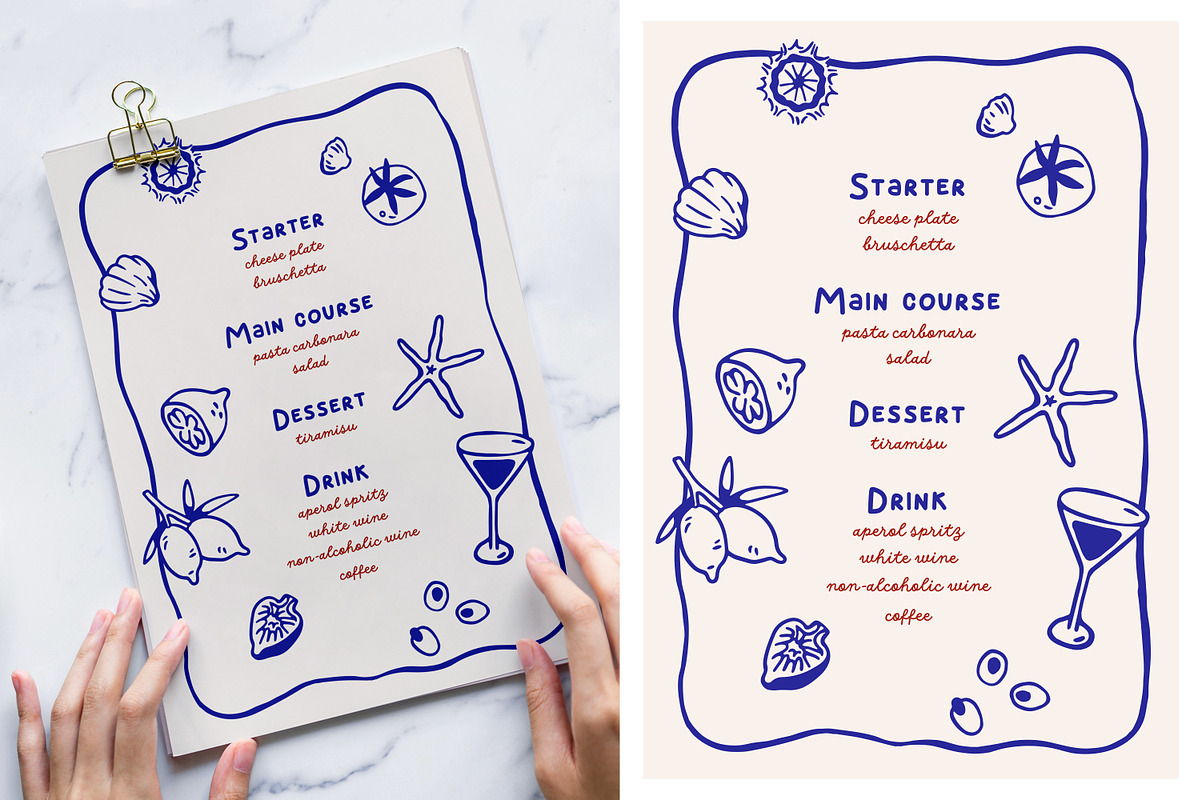 STaRTER
cheese plate
bruschetta
Main COURSE
pasta carbonara
salad
DESSERT
tiramisu
DRINK
aperol spritz
white wine
non-alcoholic wine
coffee
STaRTER
cheese plate
bruschetta
Main COURSE
pasta carbonara
salad
DESSERT
tiramisu
DRINK
aperol spritz
white wine
non-alcoholic wine
coffee